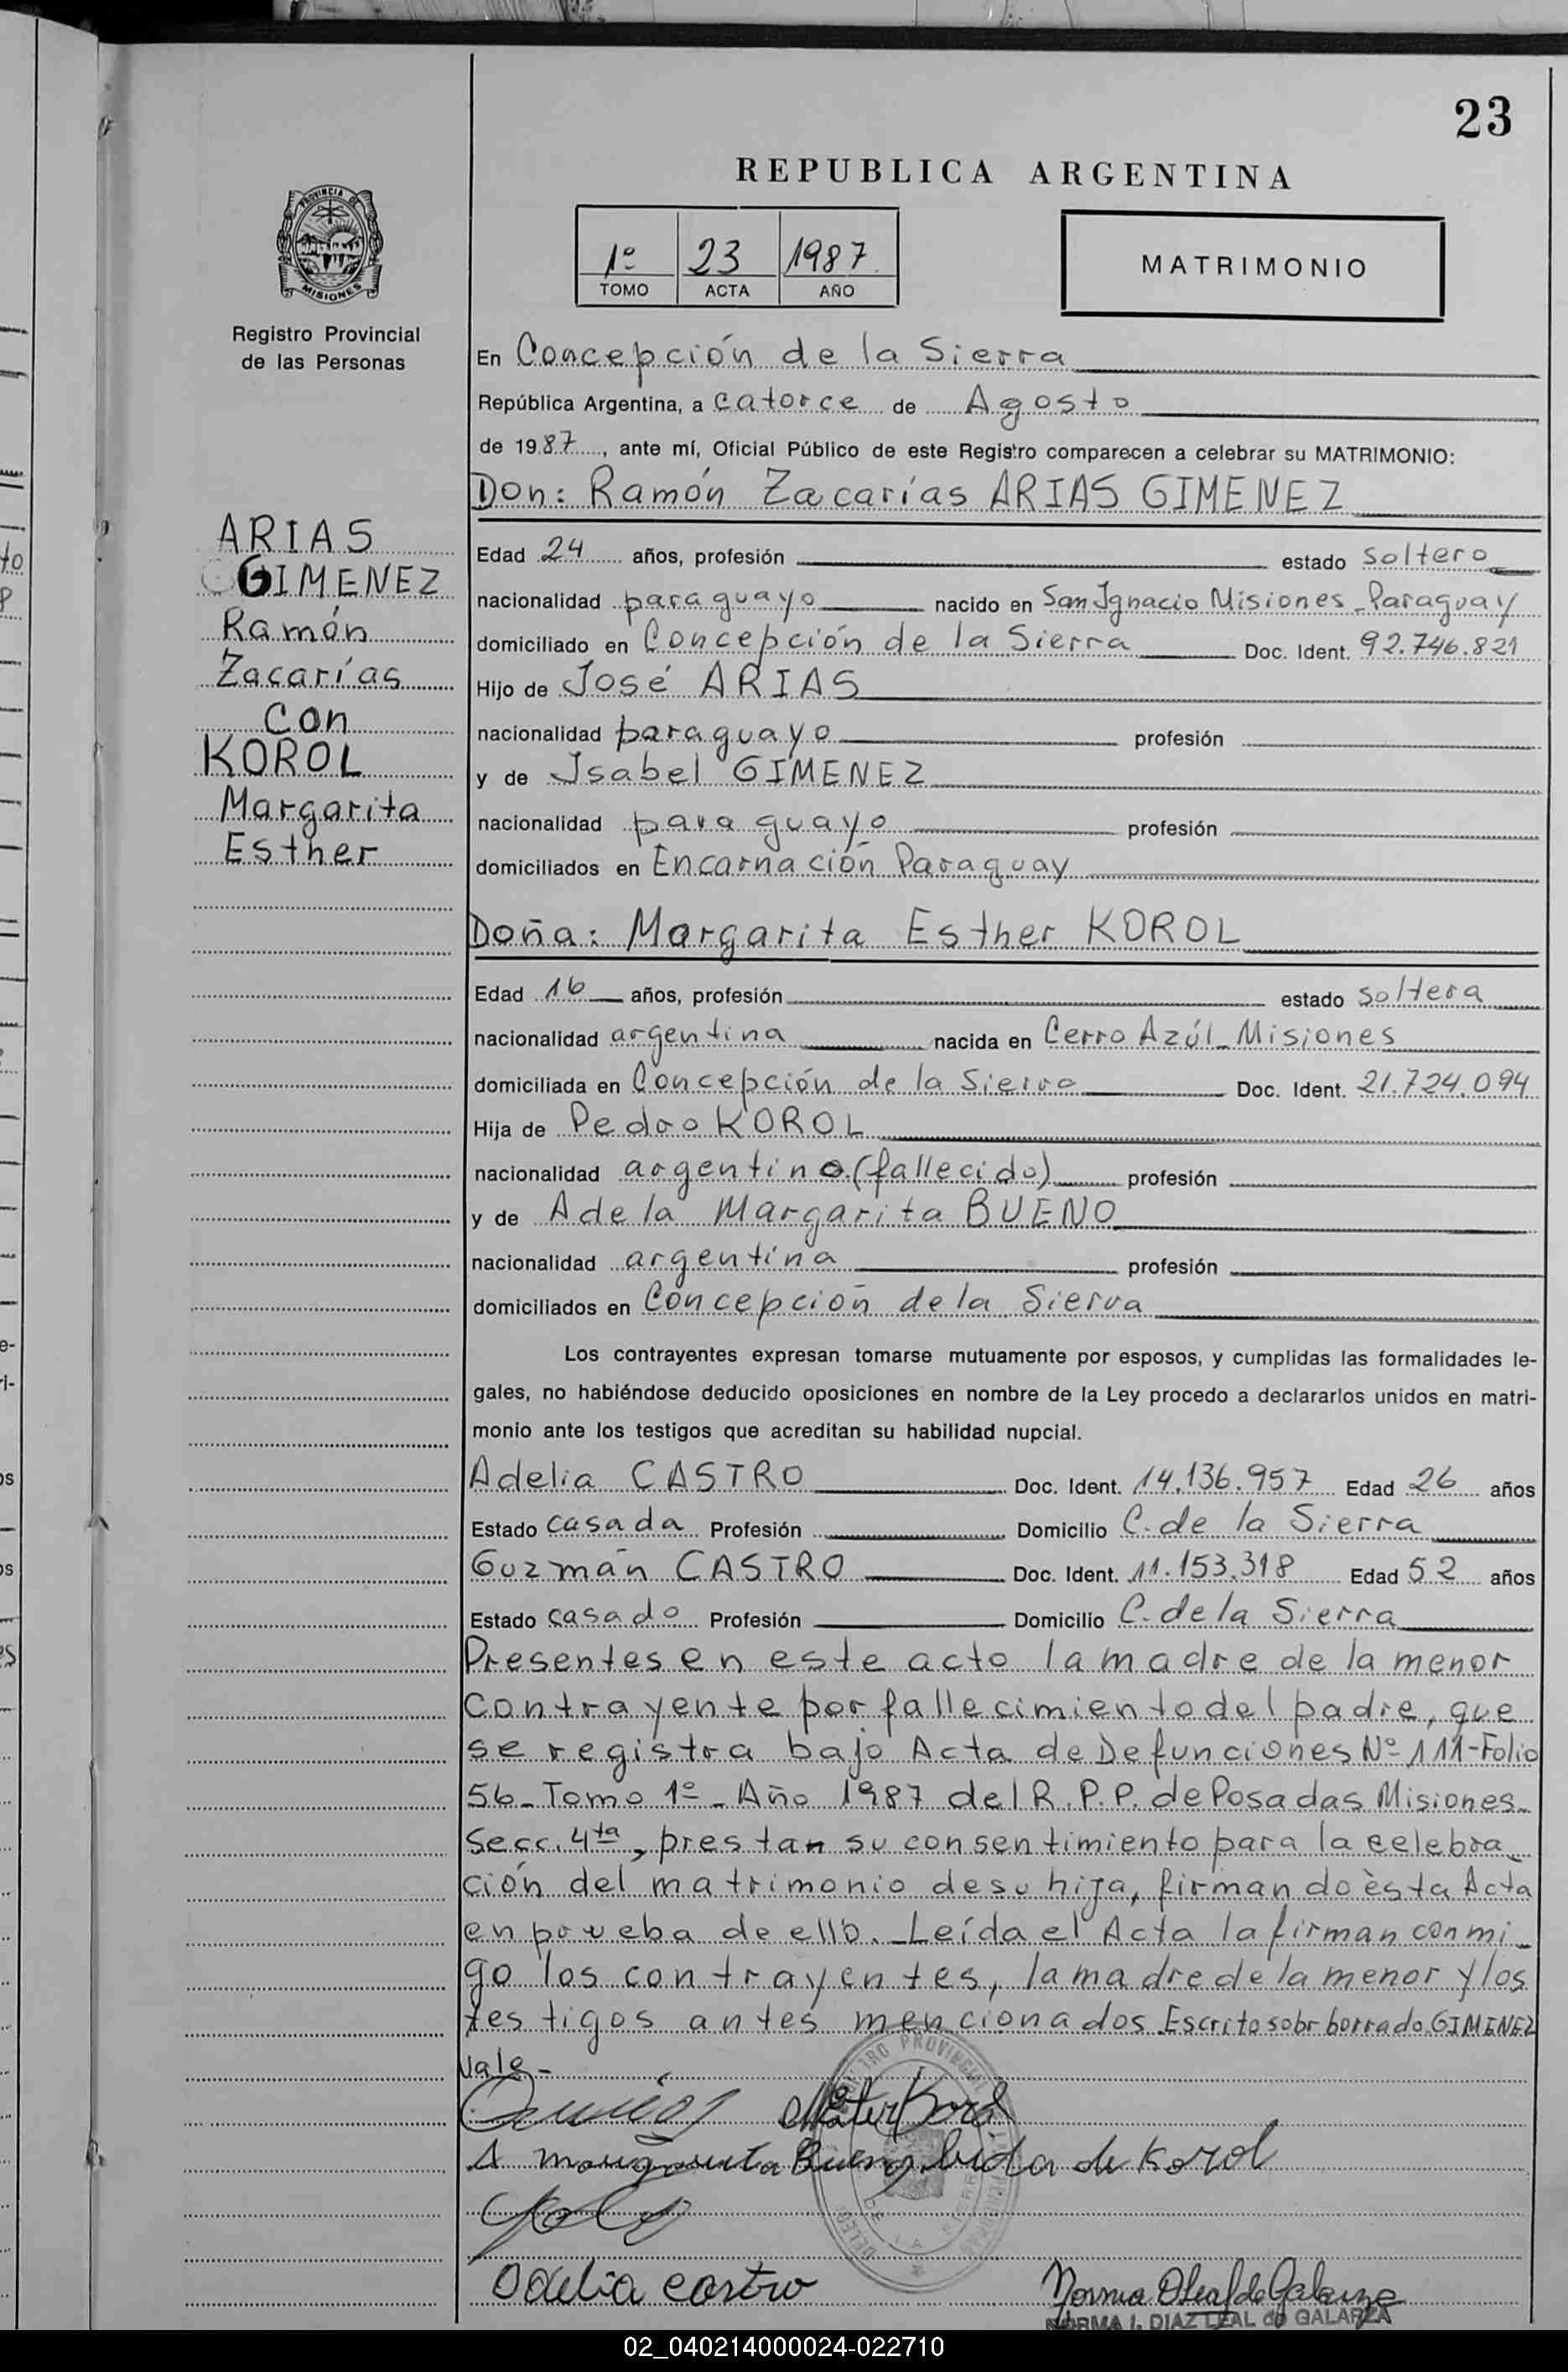 23
REPUBLICA ARGENTINA
PROVINCIA DE
MISIONES
Registro Provincial
de las Personas
1º 23 1987
TOMO ACTA AÑO
MATRIMONIO
En Concepción de la Sierra
República Argentina, a catorce de Agosto
de 1987, ante mí, Oficial Público de este Registro comparecen a celebrar su MATRIMONIO:
Don: Ramón Zacarías ARIAS GIMENEZ
ARIAS
GIMENEZ
Ramón
Zacarías
con
KOROL
Margarita
Esther
Edad 24 años, profesión estado soltero
nacionalidad paraguayo nacido en San Ignacio Misiones-Paraguay
domiciliado en Concepción de la Sierra Doc. Ident. 92.746.821
Hijo de José ARIAS
nacionalidad paraguayo profesión
y de Isabel GIMENEZ
nacionalidad paraguayo profesión
domiciliados en Encarnación Paraguay
Doña: Margarita Esther KOROL
Edad 16 años, profesión estado soltera
nacionalidad argentina nacida en Cerro Azúl-Misiones
domiciliada en Concepción de la Sierra Doc. Ident. 21.724.094
Hija de Pedro KOROL
nacionalidad argentino (fallecido) profesión
y de Adela Margarita BUENO
nacionalidad argentina profesión
domiciliados en Concepción de la Sierra
Los contrayentes expresan tomarse mutuamente por esposos, y cumplidas las formalidades le-
gales, no habiéndose deducido oposiciones en nombre de la Ley procedo a declararlos unidos en matri-
monio ante los testigos que acreditan su habilidad nupcial.
Adelia CASTRO Doc. Ident. 14.136.957 Edad 26 años
Estado casada Profesión Domicilio C. de la Sierra
Guzmán CASTRO Doc. Ident. 11.153.318 Edad 52 años
Estado casado Profesión Domicilio C. de la Sierra
Presentes en este acto la madre de la menor
contrayente por fallecimiento del padre, que
se registra bajo Acta de Defunciones Nº 111-Folio
56-Tomo 1º-Año 1987 del R.P.P. de Posadas Misiones-
Secc. 4ta, prestan su consentimiento para la celebra-
ción del matrimonio de su hija, firmando èsta Acta
en prueba de ello.-Leída el Acta la firman conmi-
go los contrayentes, la madre de la menor y los
testigos antes mencionados.Escrito sobr borrado.GIMENEZ
Vale-
Korol
A Margarita Bueno bida de Korol
Odelia castro
Norma DLeal de Galarza
NORMA I. DIAZ LEAL de GALARZA
02_040214000024-022710